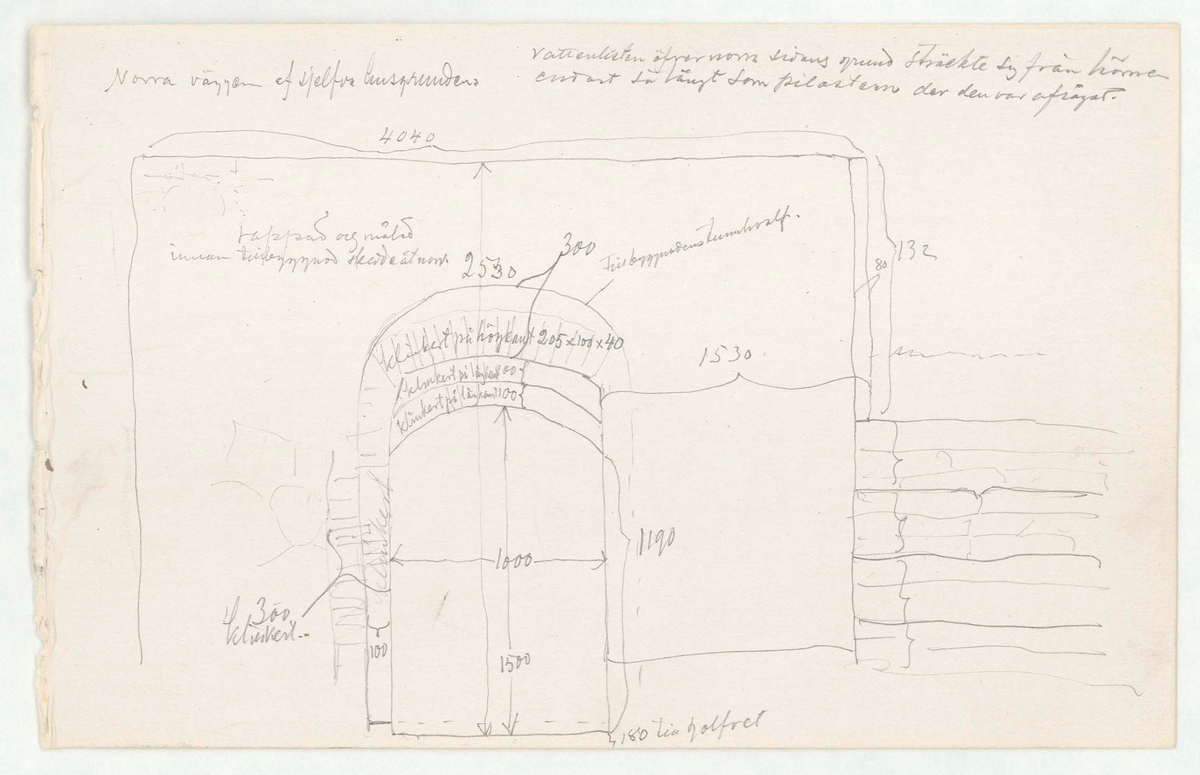 Norra väggen af sjelfva husgrunden
vattenlisten öfver norra sidans grund sträckte sig från hörnen
endast så långt som pilastern der den var afsågat.
4040
rappad och målad
innan tillbyggnad skedde åt norr
2530
300
Tillbyggnadens tunnhvalf.
132
80
klinkert på högkant 205x100x40
klinkert på lågkant 100
klinkert på lågkant 100
1530
klinkert
1190
1000
300
klinkert.
100
1500
180 till golfvet